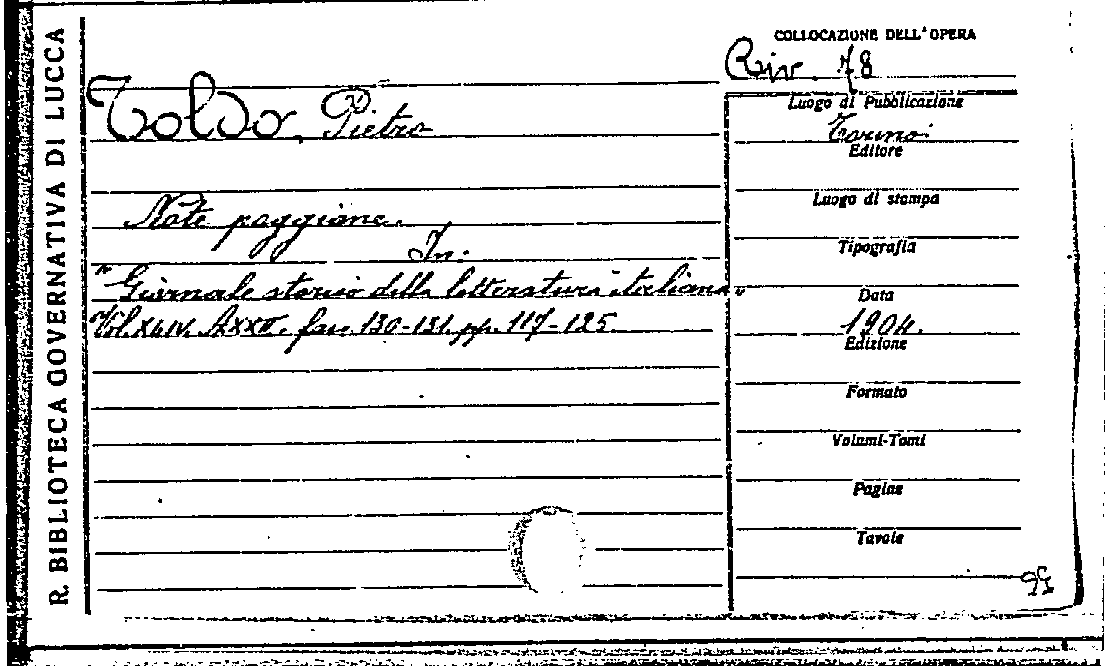 R. BIBLIOTECA GOVERNATIVA DI LUCCA
COLLOCAZIONE DELL'OPERA
Riv. 78
Toldo, Pietro
Note poggiane.
In:
"Giornale storico della letteratura italiana"
Vol. XLIV. fasc. 130-131. pp. 117-125
Luogo di Pubblicazione
Torino
Editore
Luogo di stampa
Tipografia
Data
1904.
Edizione
Formato
Volumi-Tomi
Pagine
Tavole